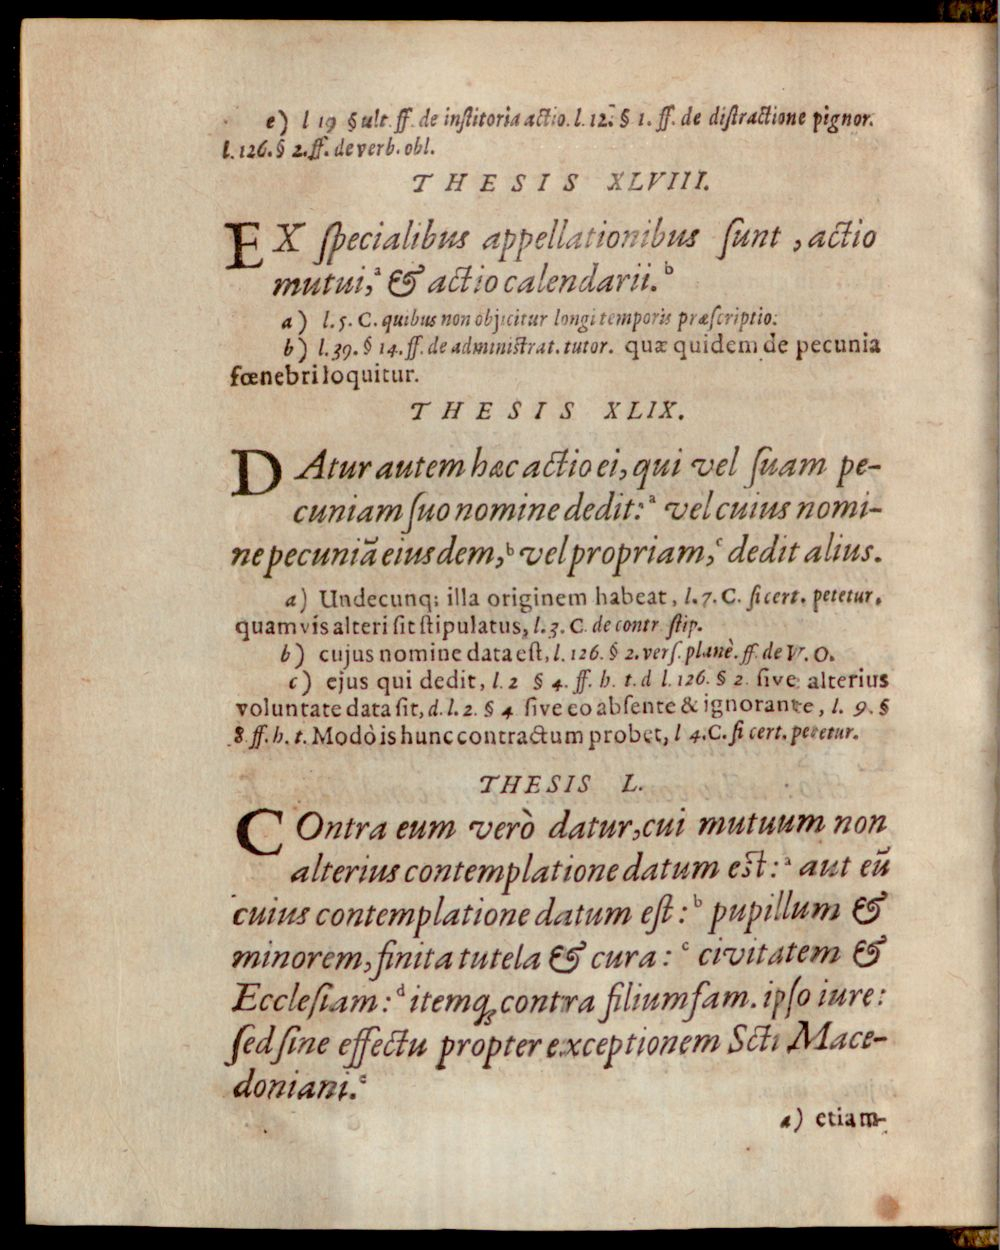 e) l 19 § ult. ff. de institoria actio. l. 12. § 1. ff. de distractione pignor.
l. 126. § 2. ff. de verb. obl.
THESIS XLVIII.
EX specialibus appellationibus sunt, actio
mutui,ᵃ & actio calendarii.ᵇ
a) l. 5. C. quibus non objicitur longi temporis præscriptio.
b) l. 39. § 14. ff. de administrat. tutor. quæ quidem de pecunia
fœnebri loquitur.
THESIS XLIX.
DAtur autem hæc actio ei, qui vel suam pe-
cuniam suo nomine dedit:ᵃ vel cuius nomi-
ne pecuniã eiusdem,ᵇ vel propriam,ᶜ dedit alius.
a) Undecunq; illa originem habeat, l. 7. C. si cert. petetur.
quamvis alteri sit stipulatus, l. 3. C. de contr stip.
b) cujus nomine data est, l. 126. § 2. vers. planè. ff. de V. O.
c) ejus qui dedit, l. 2 § 4. ff. h. t. d l. 126. § 2. sive alterius
voluntate data sit, d. l. 2. § 4 sive eo absente & ignorante, l. 9. §
8. ff. h. t. Modò is hunc contractum probet, l 4. C. si cert. petetur.
THESIS L.
COntra eum verò datur, cui mutuum non
alterius contemplatione datum est:ᵃ aut eũ
cuius contemplatione datum est:ᵇ pupillum &
minorem, finita tutela & cura:ᶜ civitatem &
Ecclesiam:ᵈ itemq; contra filiumfam. ipso iure:
sed sine effectu propter exceptionem Scti Mace-
doniani.ᵉ
a) etiam-